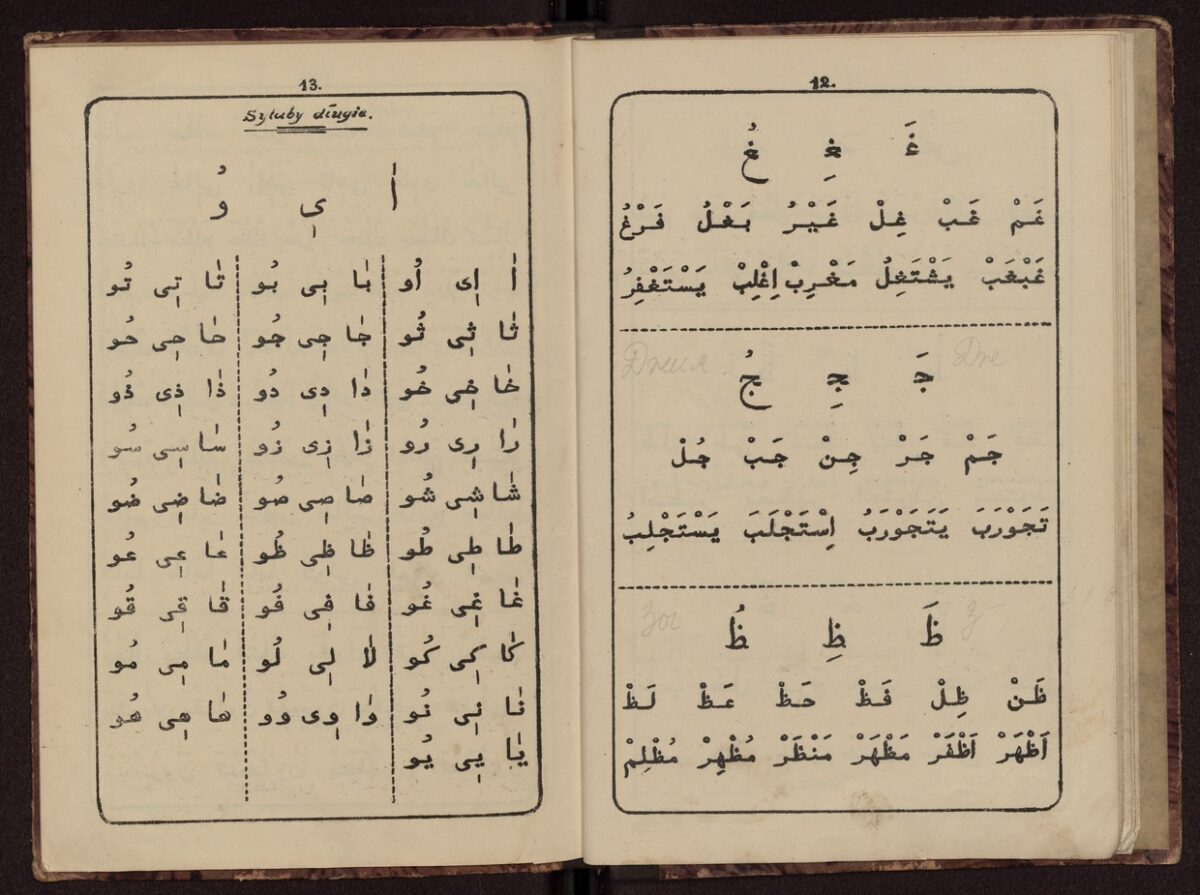 12.
غَ غِ غُ
غَمْ غَبْ غِلْ غَيْرُ بَغْلُ فَرْغُ
غَبْغَبْ يَشْتَغِلُ مَغْرِبْ اِغْلِبْ يَسْتَغْفِرُ
جَ جِ جُ
جَمْ جَرْ جِنْ جَبْ جُلْ
تَجَوْرَبَ يَتَجَوْرَبُ اِسْتَجْلَبَ يَسْتَجْلِبُ
ظَ ظِ ظُ
ظَنْ ظِلْ فَظْ حَظْ عَظْ لَظْ
اَظْهَرْ اَظْفَرْ مَظْهَرْ مَنْظَرْ مُظْهِرْ مُظْلِمْ
13.
Syluby długie.
اٰ ىِ وُ
اٰ اِى اُو بٰا بِى بُو تٰا تِى تُو
ثٰا ثِى ثُو جٰا جِى جُو حٰا حِى حُو
خٰا خِى خُو دٰا دِى دُو ذٰا ذِى ذُو
رٰا رِى رُو زٰا زِى زُو سٰا سِى سُو
شٰا شِى شُو صٰا صِى صُو ضٰا ضِى ضُو
طٰا طِى طُو ظٰا ظِى ظُو عٰا عِى عُو
غٰا غِى غُو فٰا فِى فُو قٰا قِى قُو
كٰا كِى كُو لٰا لِى لُو مٰا مِى مُو
نٰا نِى نُو وٰا وِى وُو هٰا هِى هُو
يٰا يِى يُو